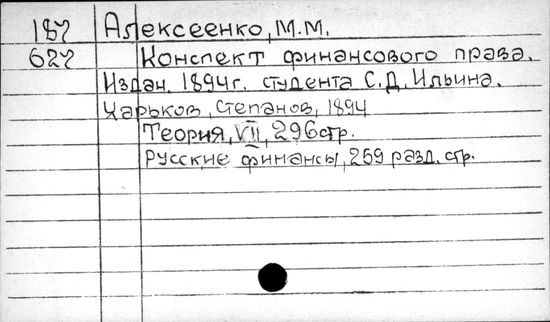 187 Алексеенко, М.М.
627 Конспект финансового права.
Издан. 1894г. студента С.Д. Ильина.
Харьков, Степанов, 1894
Теория, VII, 296 стр.
Русские финансы, 259 разд. стр.